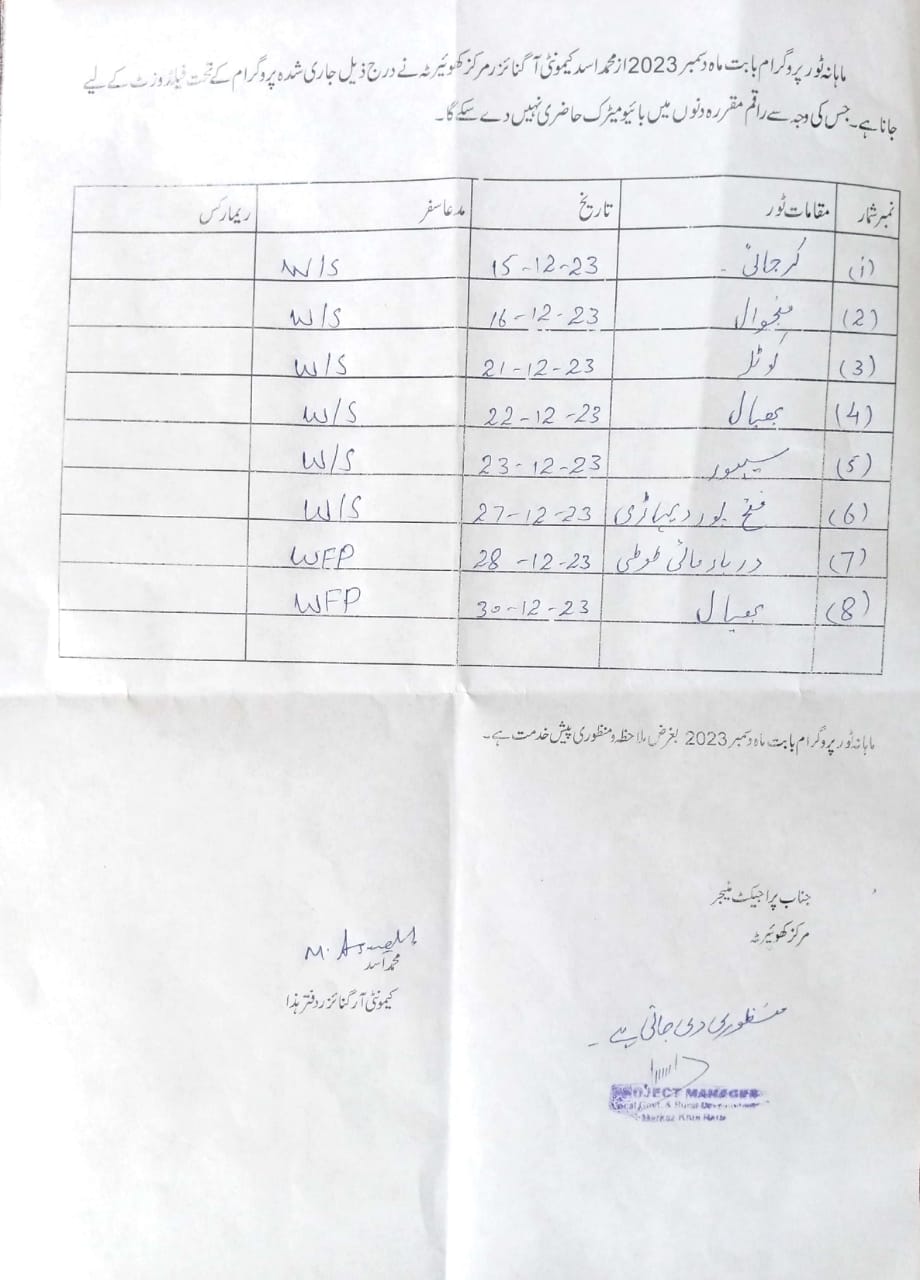 ماہانہ ٹور پروگرام بابت ماہ دسمبر 2023 از محمد اسد کیمونٹی آرگنائزر مرکز کھوئیرٹہ نے درج ذیل جاری شدہ پروگرام کے تحت فیلڈ وزٹ کے لیے
جانا ہے۔ جس کی وجہ سے راقم مقررہ دنوں میں بائیو میٹرک حاضری نہیں دے سکے گا۔
نمبر شمار مقامات ٹور تاریخ مدعا سفر ریمارکس
(1) کرجائی 15-12-23 W/S
(2) منجوال 16-12-23 W/S
(3) 21-12-23 W/S
(4) بھیال 22-12-23 W/S
(5) 23-12-23 W/S
(6) فتح پور دیہاڑی 27-12-23 W/S
(7) دربار مائی طوطی 28-12-23 WFP
(8) بھیال 30-12-23 WFP
ماہانہ ٹور پروگرام بابت ماہ دسمبر 2023 بغرض ملاحظہ و منظوری پیش خدمت ہے۔
جناب پراجیکٹ منیجر
مرکز کھوئیرٹہ
M. Asad
محمد اسد
کیمونٹی آرگنائزر دفتر ہذا
منظوری دی جاتی ہے۔
PROJECT MANAGER
Local Govt. & Rural Development
Markaz